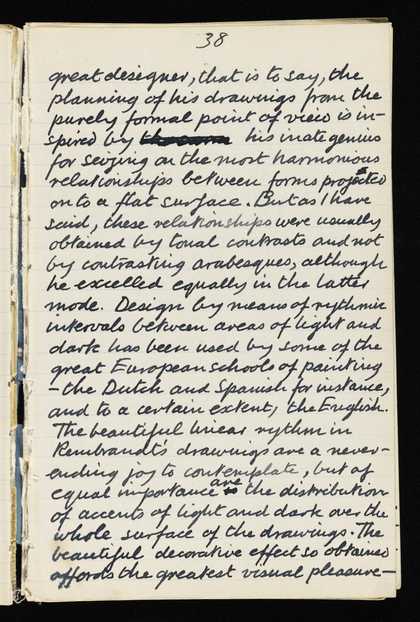 38
great designer, that is to say, the
planning of his drawings from the
purely formal point of view is in-
spired by his inate genius
for seizing on the most harmonious
relationships between forms projected
on to a flat surface. But as I have
said, these relationships were usually
obtained by tonal contrasts and not
by contrasting arabesques, although
he excelled equally in the latter
mode. Design by means of rythmic
intervals between areas of light and
dark has been used by some of the
great European schools of painting
– the Dutch and Spanish for instance,
and to a certain extent, the English.
The beautiful linear rythm in
Rembrandt's drawings are a never-
ending joy to contemplate, but of
equal importance are the distribution
of accents of light and dark over the
whole surface of the drawings. The
beautiful decorative effect so obtained
affords the greatest visual pleasure –